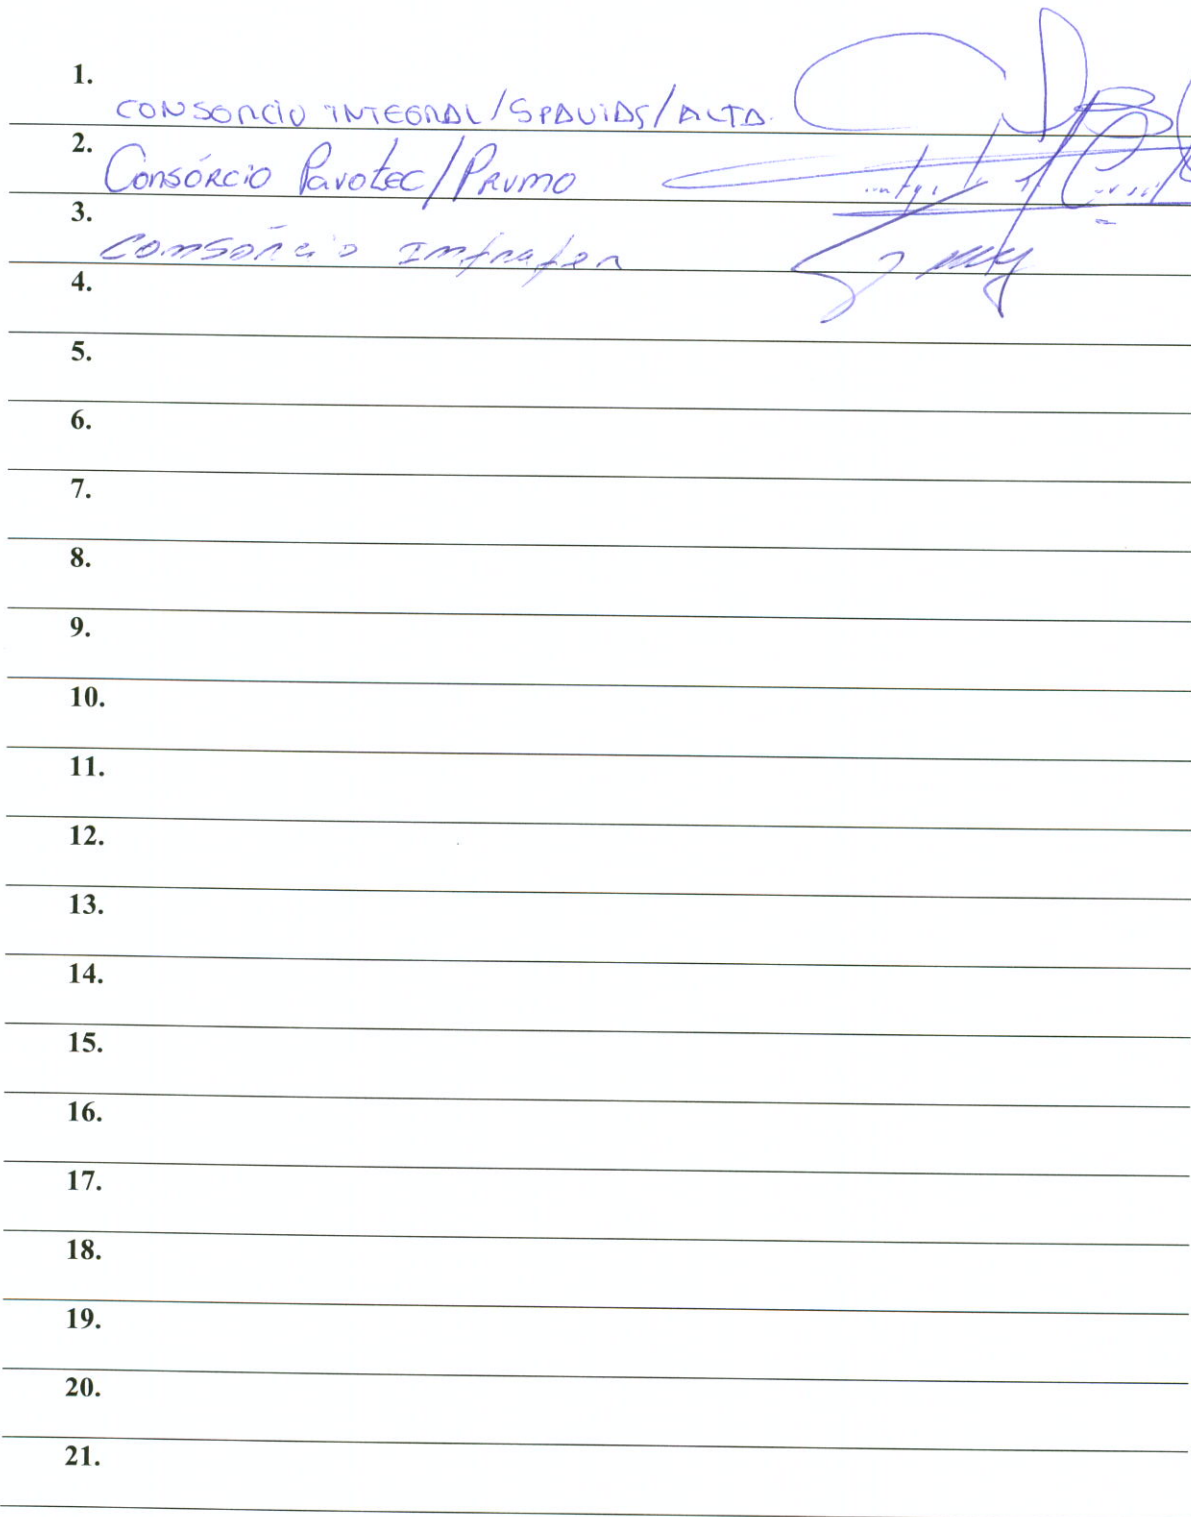 1.
CONSORCIO INTEGRAL/SPAVIAS/ALTA.
2.
Consórcio Pavotec/Prumo
3.
Consórcio Infrafer
4.
5.
6.
7.
8.
9.
10.
11.
12.
13.
14.
15.
16.
17.
18.
19.
20.
21.